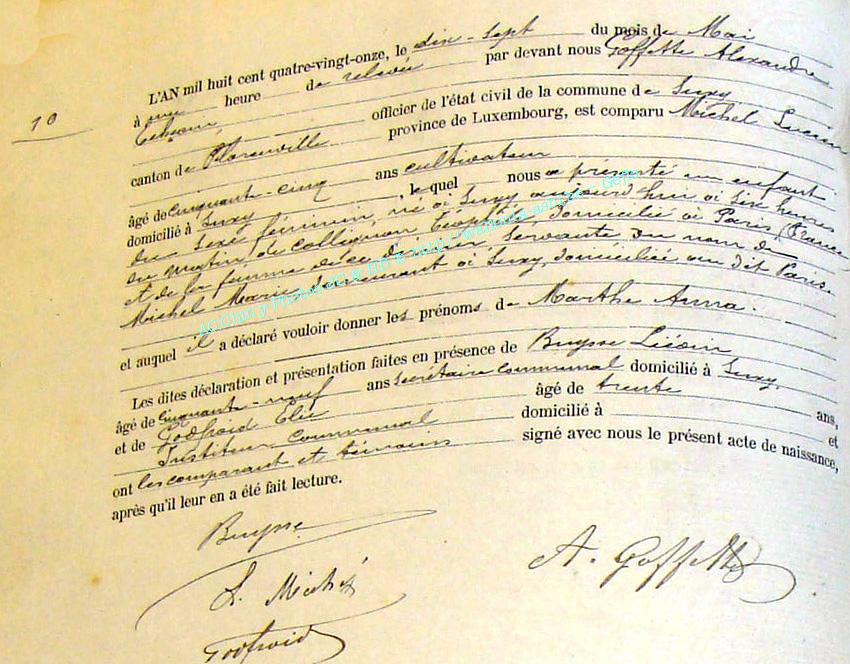 10
L'AN mil huit cent quatre-vingt-onze, le dix-sept du mois de Mai
à une heure de relevée par devant nous Goffette Alexandre
Echevin, officier de l'état civil de la commune de Suxy
canton de Florenville province de Luxembourg, est comparu Michel Lucien
âgé de cinquante-cinq ans cultivateur
domicilié à Suxy, le quel nous a présenté un enfant
du sexe féminin, né à Suxy aujourd'hui à six heures
du matin, de Collignon Théophile, domicilié à Paris (France
et de la femme de ce dernier servante du nom de
Michel Marie demeurant à Suxy, domiciliée au dit Paris.
et auquel il a déclaré vouloir donner les prénoms de Marthe Anna.
Les dites déclaration et présentation faites en présence de Buysse
âgé de cinquante-neuf ans secrétaire communal domicilié à Suxy
et de Godfroid Elie âgé de trente ans,
Instituteur communal domicilié à et
ont les comparant et témoins signé avec nous le présent acte de naissance,
après qu'il leur en a été fait lecture.
Buysse
A. Goffette
L. Michel
Godfroid